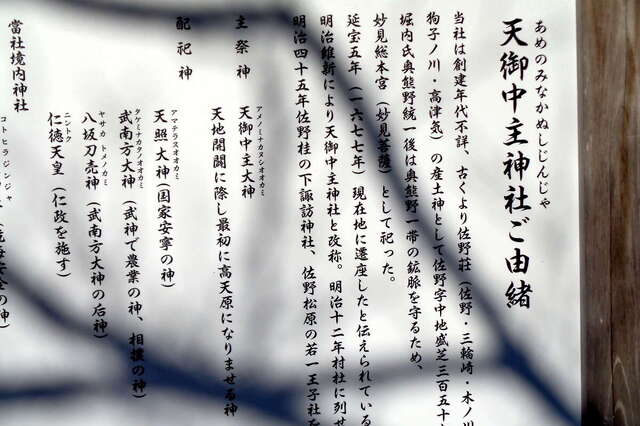 あめのみなかぬしじんじゃ
天御中主神社ご由緒
当社は創建年代不詳、古くより佐野荘（佐野・三輪崎・木ノ川
狗子ノ川・高津気）の産土神として佐野字中地盛芝三百五十
堀内氏奥熊野統一後は奥熊野一帯の鉱脈を守るため、
妙見総本宮（妙見菩薩）として祀った。
延宝五年（一六七七年）現在地に遷座したと伝えられている
明治維新により天御中主神社と改称。明治十二年村社に列せ
明治四十五年佐野桂の下諏訪神社、佐野松原の若一王子社を
主祭神
アメノミナカヌシオオカミ
天御中主大神
天地開闢に際し最初に高天原になりませる神
配祀神
アマテラスオオカミ
天照大神（国家安寧の神）
タケミナカタノオオカミ
武南方大神（武神で農業の神、相撲の神）
ヤサカ トメノカミ
八坂刀売神（武南方大神の后神）
ニントク
仁徳天皇（仁政を施す）
當社境内神社
コトヒラジンジャ